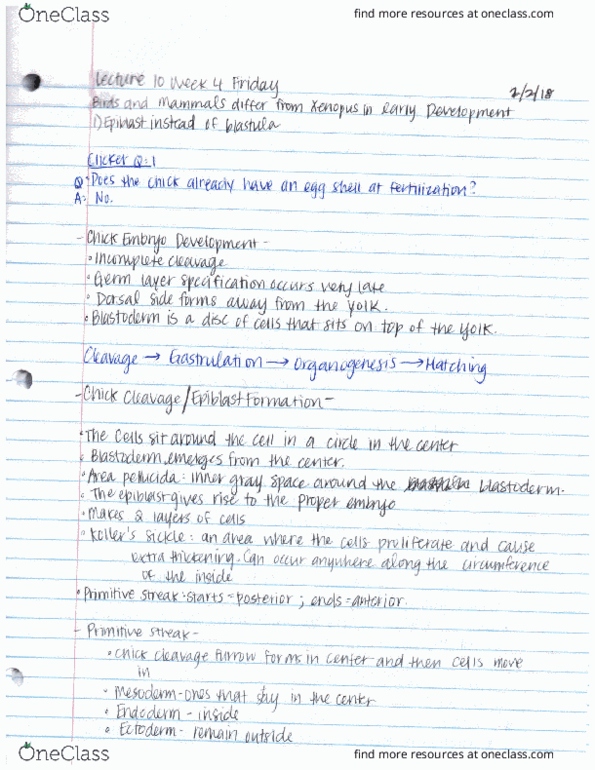 OneClass
find more resources at oneclass.com
Lecture 10 Week 4 Friday
2/2/18
Birds and mammals differ from Xenopus in early Development
1) Epiblast instead of blastula
Clicker Q:1
Q: Does the chick already have an egg shell at fertilization?
A: No.
- Chick Embryo Development -
• Incomplete cleavage
• Germ layer specification occurs very late
• Dorsal side forms away from the yolk.
• Blastoderm is a disc of cells that sits on top of the yolk.
Cleavage → Gastrulation → Organogenesis → Hatching
- Chick Cleavage / Epiblast Formation -
• The Cells sit around the cell in a circle in the center
• Blastoderm emerges from the center.
• Area pellucida: inner gray space around the blastoderm.
• The epiblast gives rise to the proper embryo
• Makes 2 layers of cells
• Koller's Sickle: an area where the cells proliferate and cause
extra thickening. Can occur anywhere along the circumference
of the inside
• Primitive streak: starts = posterior ; ends = anterior.
- Primitive streak -
• Chick cleavage furrow forms in center and then cells move
in
• Mesoderm - ones that stay in the center
• Endoderm - inside
• Ectoderm - remain outside
OneClass
find more resources at oneclass.com